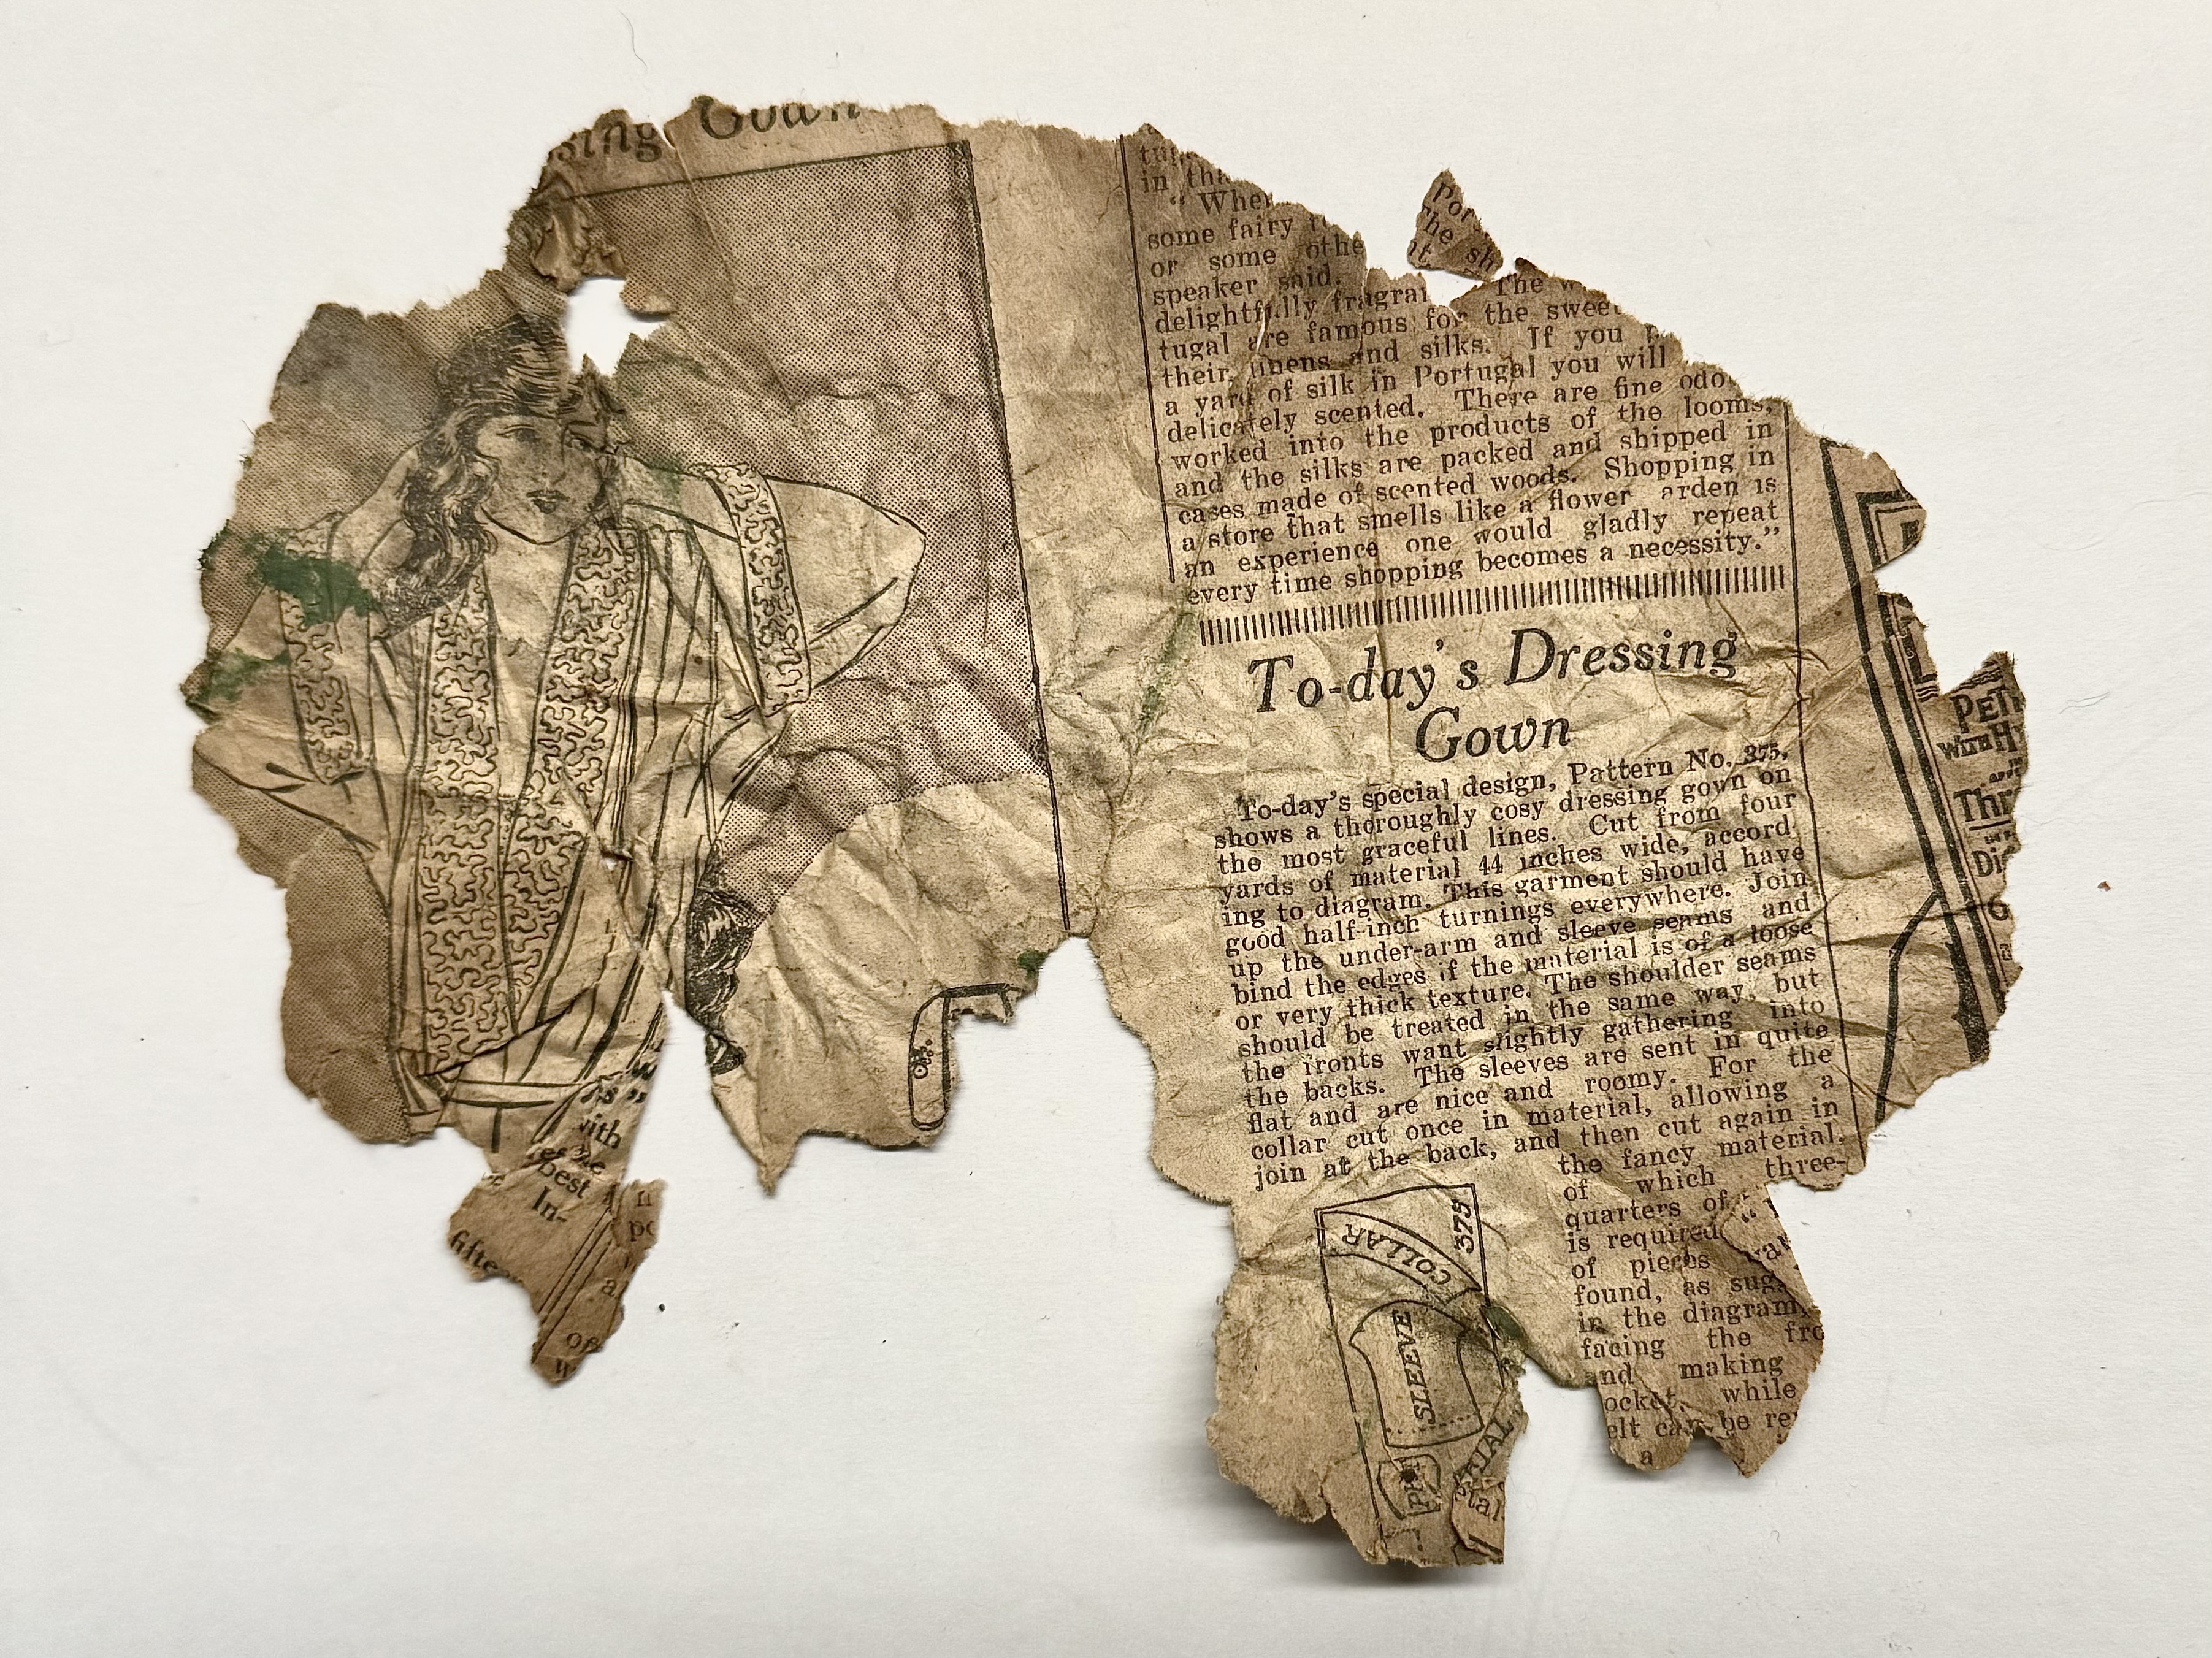 Gown
in
"
some fairy
or some
speaker said.
delightfully The
tugal are famous for the
their linens and silks. If you
a yard of silk in Portugal you will
delicately scented. There are fine
worked into the products of the looms,
and the silks are packed and shipped in
cases made of scented woods. Shopping in
a store that smells like a flower arden is
an experience one would gladly repeat
every time shopping becomes a necessity."
To-day's Dressing
Gown
To-day's special design, Pattern No. 375,
shows a thoroughly cosy dressing gown on
the most graceful lines. Cut from four
yards of material 44 inches wide, accord
ing to diagram. This garment should have
good half-inch turnings everywhere. Join
up the under-arm and sleeve seams and
bind the edges if the material is of a loose
or very thick texture. The shoulder seams
should be treated in the same way, but
the fronts want slightly gathering into
the backs. The sleeves are sent in quite
flat and are nice and roomy. For the
collar cut once in material, allowing a
join at the back, and then cut again in
the fancy material.
of which three-
quarters of
is required
of pieces
found, as
in the diagram,
facing the
making
while
be
a
COLLAR
375
SLEEVE
best
In-
of